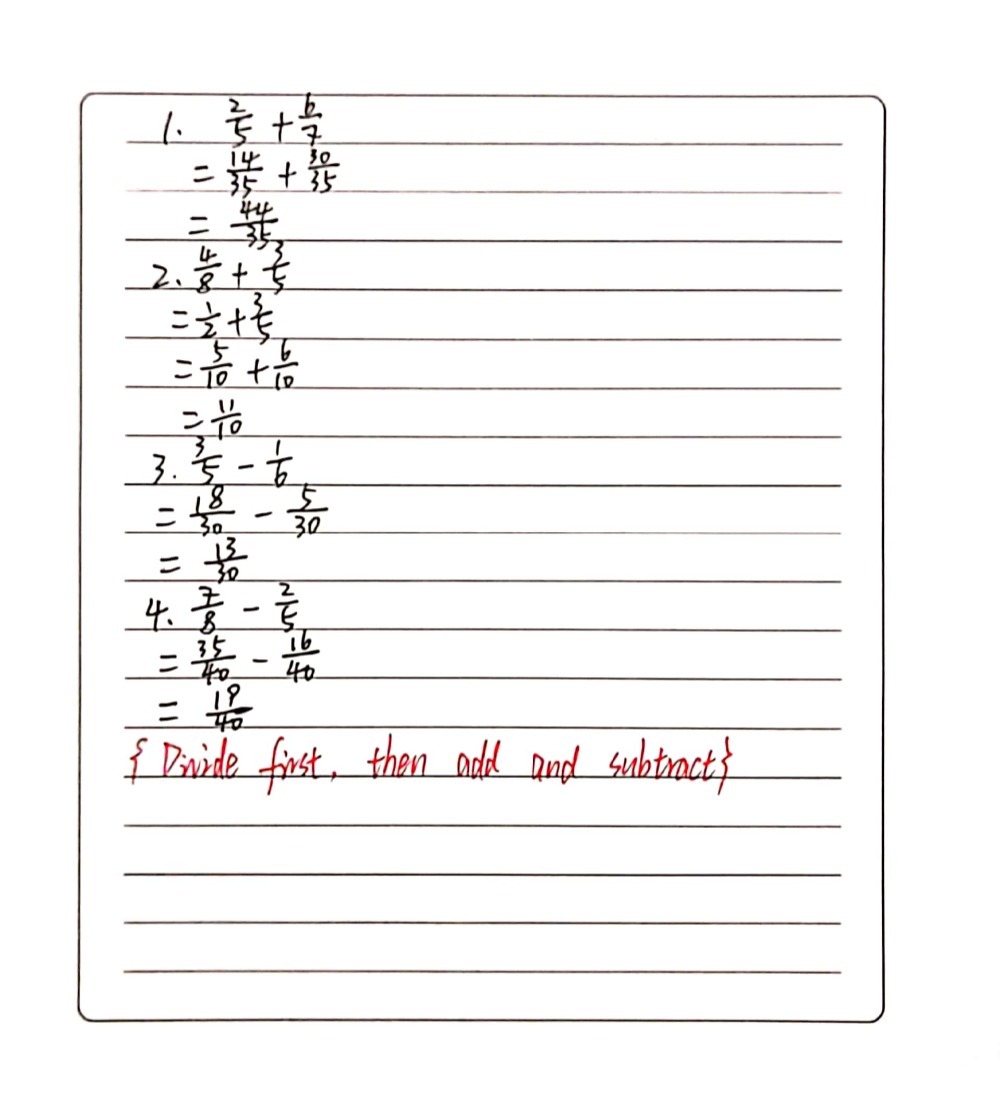 1. 2/5 + 6/7
= 14/35 + 30/35
= 44/35
2. 4/8 + 3/5
= 1/2 + 3/5
= 5/10 + 6/10
= 11/10
3. 3/5 - 1/6
= 18/30 - 5/30
= 13/30
4. 7/8 - 2/5
= 35/40 - 16/40
= 19/40
{Divide first, then add and subtract}